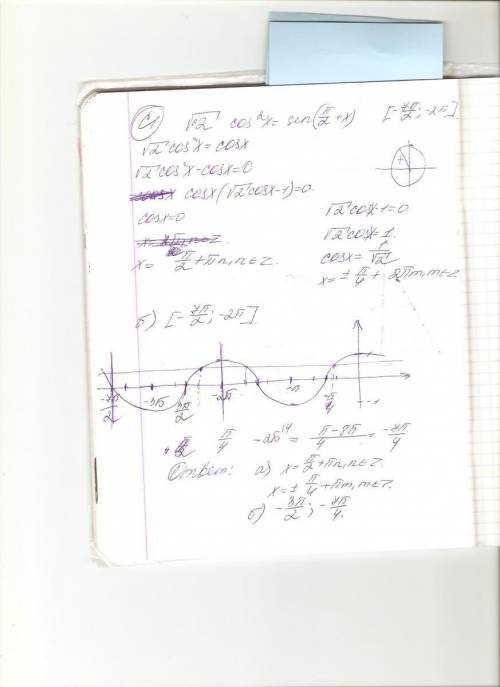 С1 √2 cos²x = sin(π/2 + x) [-7π/2; -2π]
√2 cos²x = cosx
√2 cos²x - cosx = 0
cosx(√2 cosx - 1) = 0
cosx = 0 √2 cosx - 1 = 0
√2 cosx = 1.
x = π/2 + πn, n∈Z. cosx = 1/√2
x = ± π/4 + 2πm, m∈Z
б) [-7π/2; -2π].
-7π/2 -3π 5π/2 -2π -π -π/4 -1
π/4 - 2π = π-8π/4 = -7π/4
Ответ: а) x = π/2 + πn, n∈Z.
x = ± π/4 + πm, m∈Z.
б) -3π/2; -7π/4.